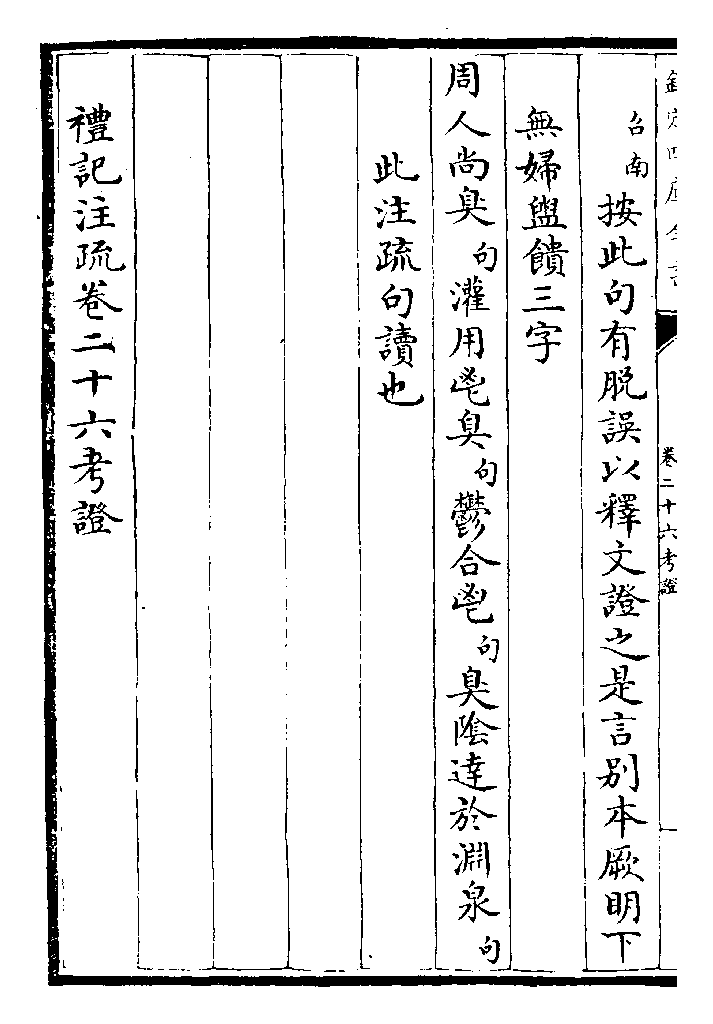 欽定四庫全書
卷二十六考證
召南按此句有脫誤以釋文證之是言別本厥明下
無婦盥饋三字
周人尚臭句灌用鬯臭句鬱合鬯句臭陰達於淵泉句
此注疏句讀也
禮記注疏卷二十六考證